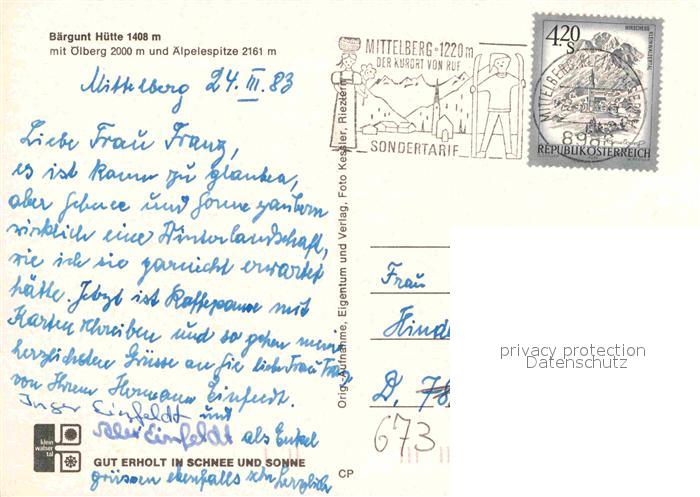 Bärgunt Hütte 1408 m
mit Ölberg 2000 m und Älpelespitze 2161 m
Mittelberg 24. III. 83
Liebe Frau Franz,
es ist kaum zu glauben,
aber Schnee und Sonne zaubern
wirklich eine Winterlandschaft,
wie ich sie garnicht erwartet
hätte. Jetzt ist Kaffepause mit
Karten schreiben und so gehen meine
herzlichsten Grüsse an Sie liebe Frau Franz
von Ihrem Hermann Einfeldt.
Inger Einfeldt und
Einfeldt als Enkel
grüssen ebenfalls sehr herzlich
klein
walser
tal
GUT ERHOLT IN SCHNEE UND SONNE
CP
Orig.-Aufnahme, Eigentum und Verlag, Foto Kessler, Riezlern
MITTELBERG 1220m
DER KURORT VON RUF
SONDERTARIF
4.20
S
HIRSCHEGG
KLEINWALSERTAL
REPUBLIK ÖSTERREICH
MITTELBERG, KLEINWALSERTAL
Frau
Hinde
D, 78
673
privacy protection
Datenschutz